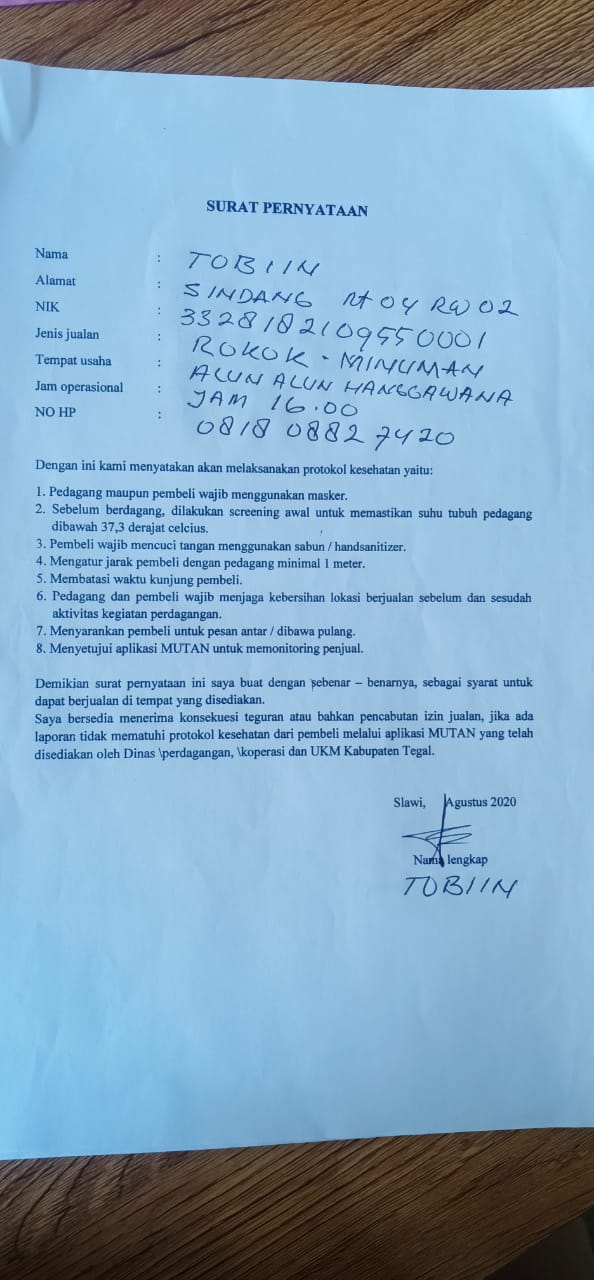 SURAT PERNYATAAN
Nama : TOBIIN
Alamat : SINDANG Rt 04 RW 02
NIK : 3328182109550001
Jenis jualan : ROKOK - MINUMAN
Tempat usaha : ALUN ALUN HANGGAWANA
Jam operasional : JAM 16.00
NO HP : 0818 0882 7420
Dengan ini kami menyatakan akan melaksanakan protokol kesehatan yaitu:
1. Pedagang maupun pembeli wajib menggunakan masker.
2. Sebelum berdagang, dilakukan screening awal untuk memastikan suhu tubuh pedagang
dibawah 37,3 derajat celcius.
3. Pembeli wajib mencuci tangan menggunakan sabun / handsanitizer.
4. Mengatur jarak pembeli dengan pedagang minimal 1 meter.
5. Membatasi waktu kunjung pembeli.
6. Pedagang dan pembeli wajib menjaga kebersihan lokasi berjualan sebelum dan sesudah
aktivitas kegiatan perdagangan.
7. Menyarankan pembeli untuk pesan antar / dibawa pulang.
8. Menyetujui aplikasi MUTAN untuk memonitoring penjual.
Demikian surat pernyataan ini saya buat dengan sebenar – benarnya, sebagai syarat untuk
dapat berjualan di tempat yang disediakan.
Saya bersedia menerima konsekuesi teguran atau bahkan pencabutan izin jualan, jika ada
laporan tidak mematuhi protokol kesehatan dari pembeli melalui aplikasi MUTAN yang telah
disediakan oleh Dinas \perdagangan, \koperasi dan UKM Kabupaten Tegal.
Slawi, Agustus 2020
Nama lengkap
TOBIIN